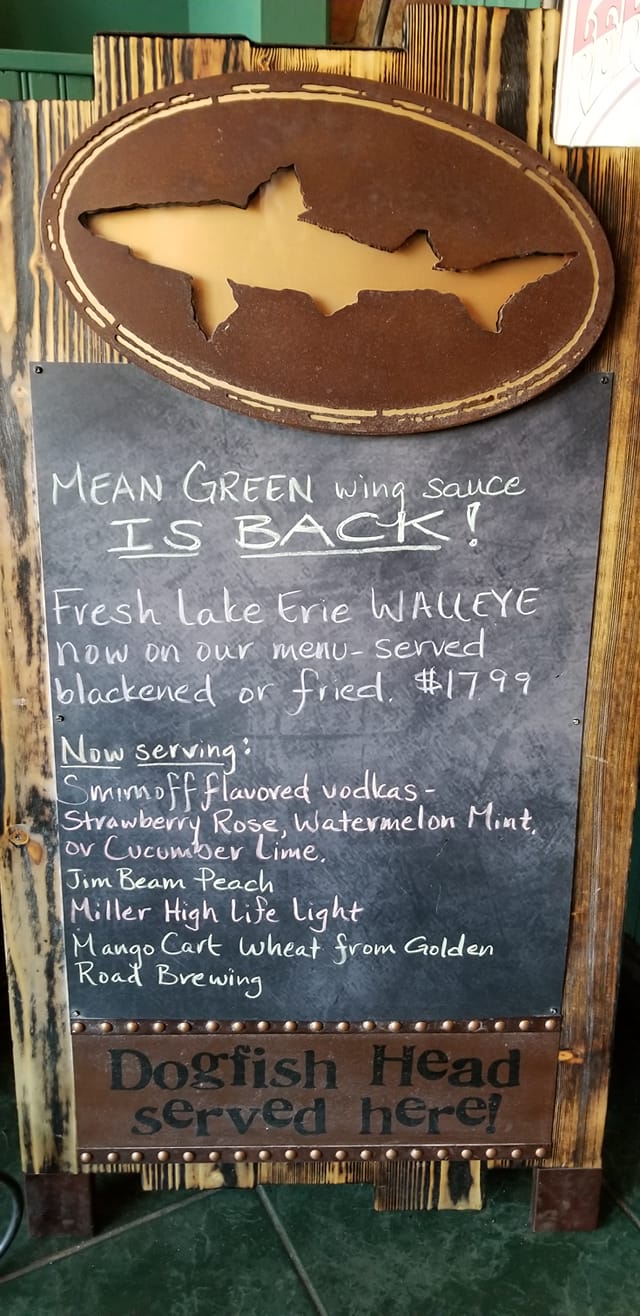 MEAN GREEN wing sauce
IS BACK!
Fresh Lake Erie WALLEYE
now on our menu - served
blackened or fried. $17.99
Now serving:
Smirnoff flavored vodkas -
Strawberry Rose, Watermelon Mint,
or Cucumber Lime.
Jim Beam Peach
Miller High Life Light
Mango Cart Wheat from Golden
Road Brewing
Dogfish Head
served here!